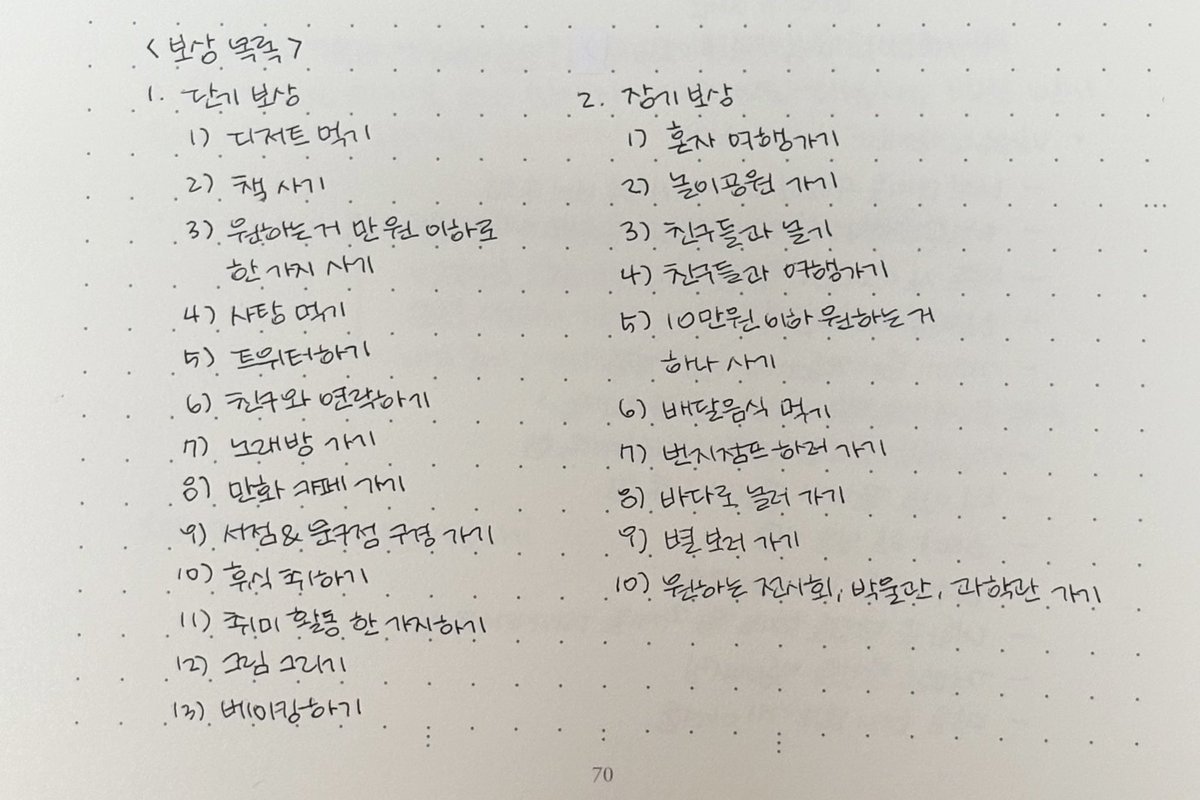 <보상 목록>
1. 단기 보상
1) 디저트 먹기
2) 책 사기
3) 원하는거 만 원 이하로
한 가지 사기
4) 사탕 먹기
5) 트위터하기
6) 친구와 연락하기
7) 노래방 가기
8) 만화 카페 가기
9) 서점&문구점 구경 가기
10) 휴식 취하기
11) 취미 활동 한 가지하기
12) 그림 그리기
13) 베이킹하기
2. 장기 보상
1) 혼자 여행가기
2) 놀이공원 가기
3) 친구들과 놀기
4) 친구들과 여행가기
5) 10만원 이하 원하는 거
하나 사기
6) 배달음식 먹기
7) 번지점프 하러 가기
8) 바다로 놀러 가기
9) 별 보러 가기
10) 원하는 전시회, 박물관, 과학관 가기
70